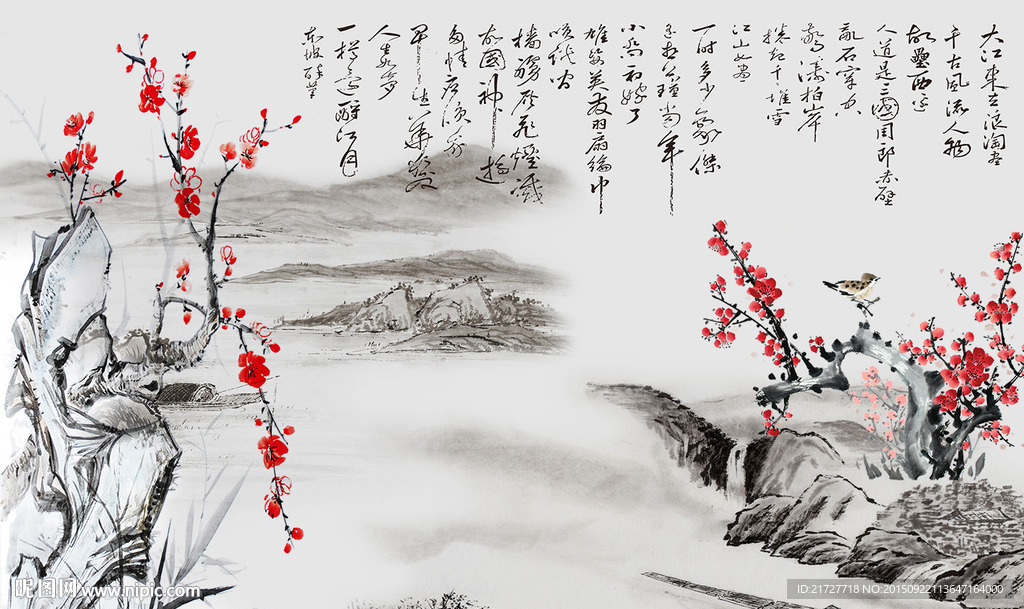 大江東去浪淘盡
千古風流人物
故壘西邊
人道是三國周郎赤壁
亂石穿空
驚濤拍岸
捲起千堆雪
江山如畫
一時多少豪傑
遙想公瑾當年
小喬初嫁了
雄姿英發羽扇綸巾
談笑間
檣艣灰飛煙滅
故國神遊
多情應笑我
早生華髮
人生如夢
一樽還酹江月
東坡醉筆
昵图网 www.nipic.com
ID:21727718 NO:20150922113647164000